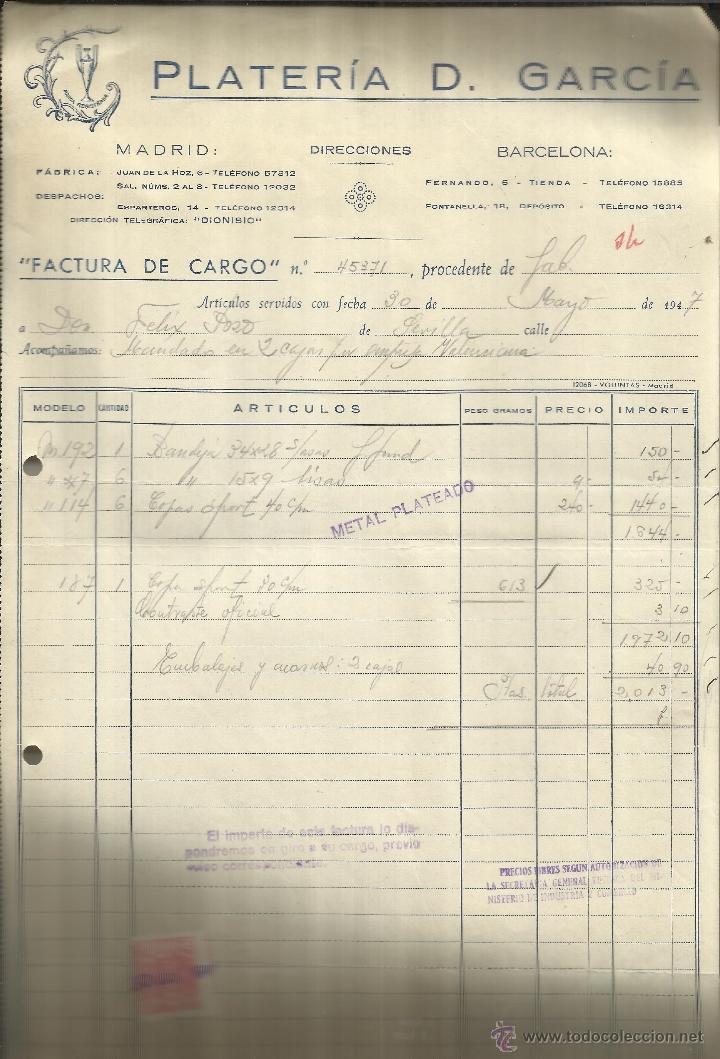 PLATERÍA D. GARCÍA
MADRID: DIRECCIONES BARCELONA:
FÁBRICA: JUAN DE LA HOZ, 6 - TELÉFONO 57812
SAL, NÚMS. 2 AL 8 - TELÉFONO 12032
DESPACHOS:
ESPARTEROS, 14 - TELÉFONO 12314
DIRECCIÓN TELEGRÁFICA: "DIONISIO"
FERNANDO, 6 - TIENDA - TELÉFONO 15885
FONTANELLA, 18, DEPÓSITO - TELÉFONO 16314
"FACTURA DE CARGO" n.º 45371, procedente de Fab.
Artículos servidos con fecha 30 de Mayo de 1947
a Don Felix Pozo de Sevilla calle
Acompañamos: Mandado en 2 cajas por Valenciana
12068 - VOLUNTAS - Madrid
MODELO CANTIDAD ARTICULOS PESO GRAMOS PRECIO IMPORTE
M 192 1 Bandeja 34x28 s/asas fund 150 -
6 " 15x9 lisas 9 - 54 -
" 114 6 Copas sport 40 c/m 240 - 1440 -
METAL PLATEADO
1644 -
187 1 Copa sport 613 325 -
Contraste oficial 3 10
1972 10
Embalajes y : 2 cajas 40 90
Ptas. Total 2,013 -
El importe de esta factura lo dis-
pondremos en giro a su cargo, previo
aviso correspondiente.
PRECIOS LIBRES SEGUN AUTORIZACION DE
LA SECRETARIA GENERAL TECNICA DEL MI-
NISTERIO DE INDUSTRIA Y COMERCIO
www.todocoleccion.net